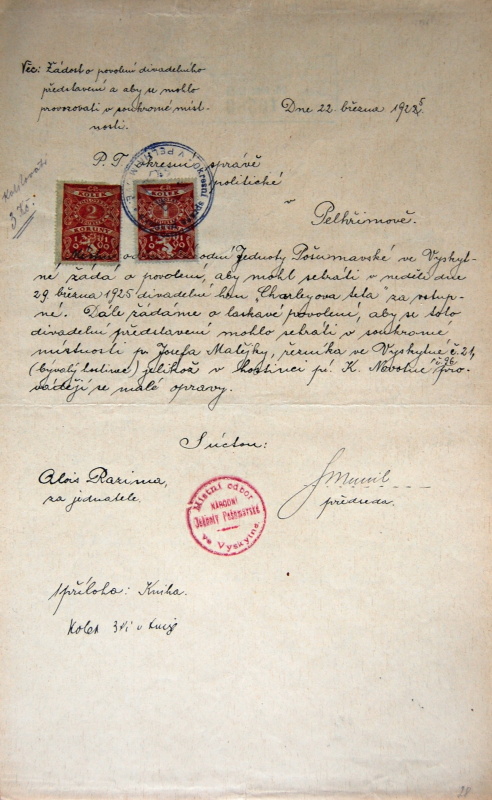 Věc: Žádost o povolení divadelního
představení a aby se mohlo
provozovati v soukromé míst-
nosti.
Dne 22. března 1925
Kolkováti
3 Kč.
P. T. okresní správě
politické
v
Pelhřimově.
KOLEK
2
KORUNY
KOLEK
1
KORUNY
odní Jednoty Pošumavské ve Vyskyt-
né žádá o povolení, aby mohl sehráti v neděli dne
29. března 1925 divadelní hru „Charleyova teta" za vstup-
né. Dále žádáme o laskavé povolení, aby se toto
divadelní představení mohlo sehráti v soukromé
místnosti p. Josefa Matějky, řezníka ve Vyskytné č. 21,
(bývalý hostinec) jelikož v hostinci pí. K. Novotné č. 96 pro-
vádějí se malé opravy.
S úctou:
Alois Razima,
za jednatele.
Místní odbor
NÁRODNÍ
Jednoty Pošumavské
ve Vyskytné
předseda.
1 příloha: Kniha.
Kolek